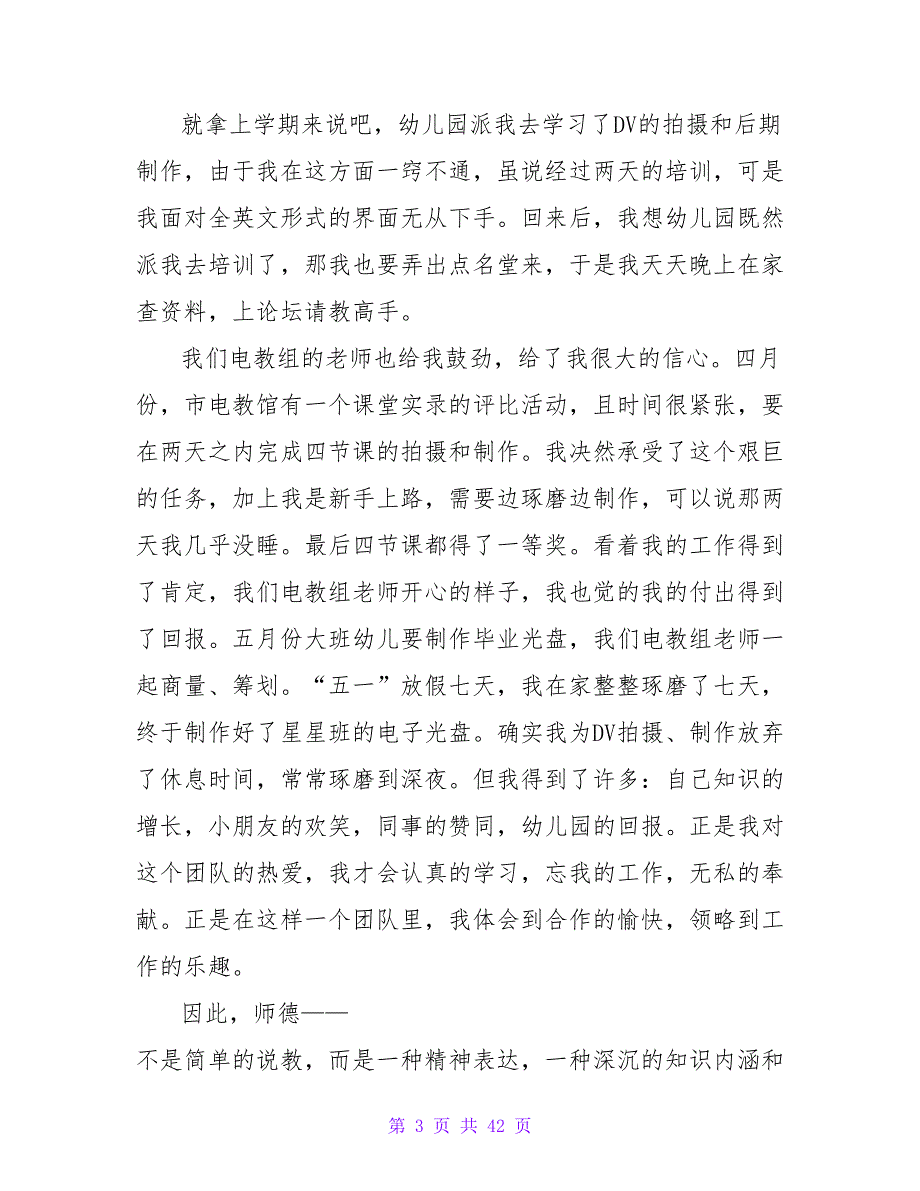 就拿上学期来说吧，幼儿园派我去学习了DV的拍摄和后期
制作，由于我在这方面一窍不通，虽说经过两天的培训，可是
我面对全英文形式的界面无从下手。回来后，我想幼儿园既然
派我去培训了，那我也要弄出点名堂来，于是我天天晚上在家
查资料，上论坛请教高手。
我们电教组的老师也给我鼓劲，给了我很大的信心。四月
份，市电教馆有一个课堂实录的评比活动，且时间很紧张，要
在两天之内完成四节课的拍摄和制作。我决然承受了这个艰巨
的任务，加上我是新手上路，需要边琢磨边制作，可以说那两
天我几乎没睡。最后四节课都得了一等奖。看着我的工作得到
了肯定，我们电教组老师开心的样子，我也觉的我的付出得到
了回报。五月份大班幼儿要制作毕业光盘，我们电教组老师一
起商量、筹划。“五一”放假七天，我在家整整琢磨了七天，
终于制作好了星星班的电子光盘。确实我为DV拍摄、制作放弃
了休息时间，常常琢磨到深夜。但我得到了许多：自己知识的
增长，小朋友的欢笑，同事的赞同，幼儿园的回报。正是我对
这个团队的热爱，我才会认真的学习，忘我的工作，无私的奉
献。正是在这样一个团队里，我体会到合作的愉快，领略到工
作的乐趣。
因此，师德——
不是简单的说教，而是一种精神表达，一种深沉的知识内涵和
第 3 页 共 42 页